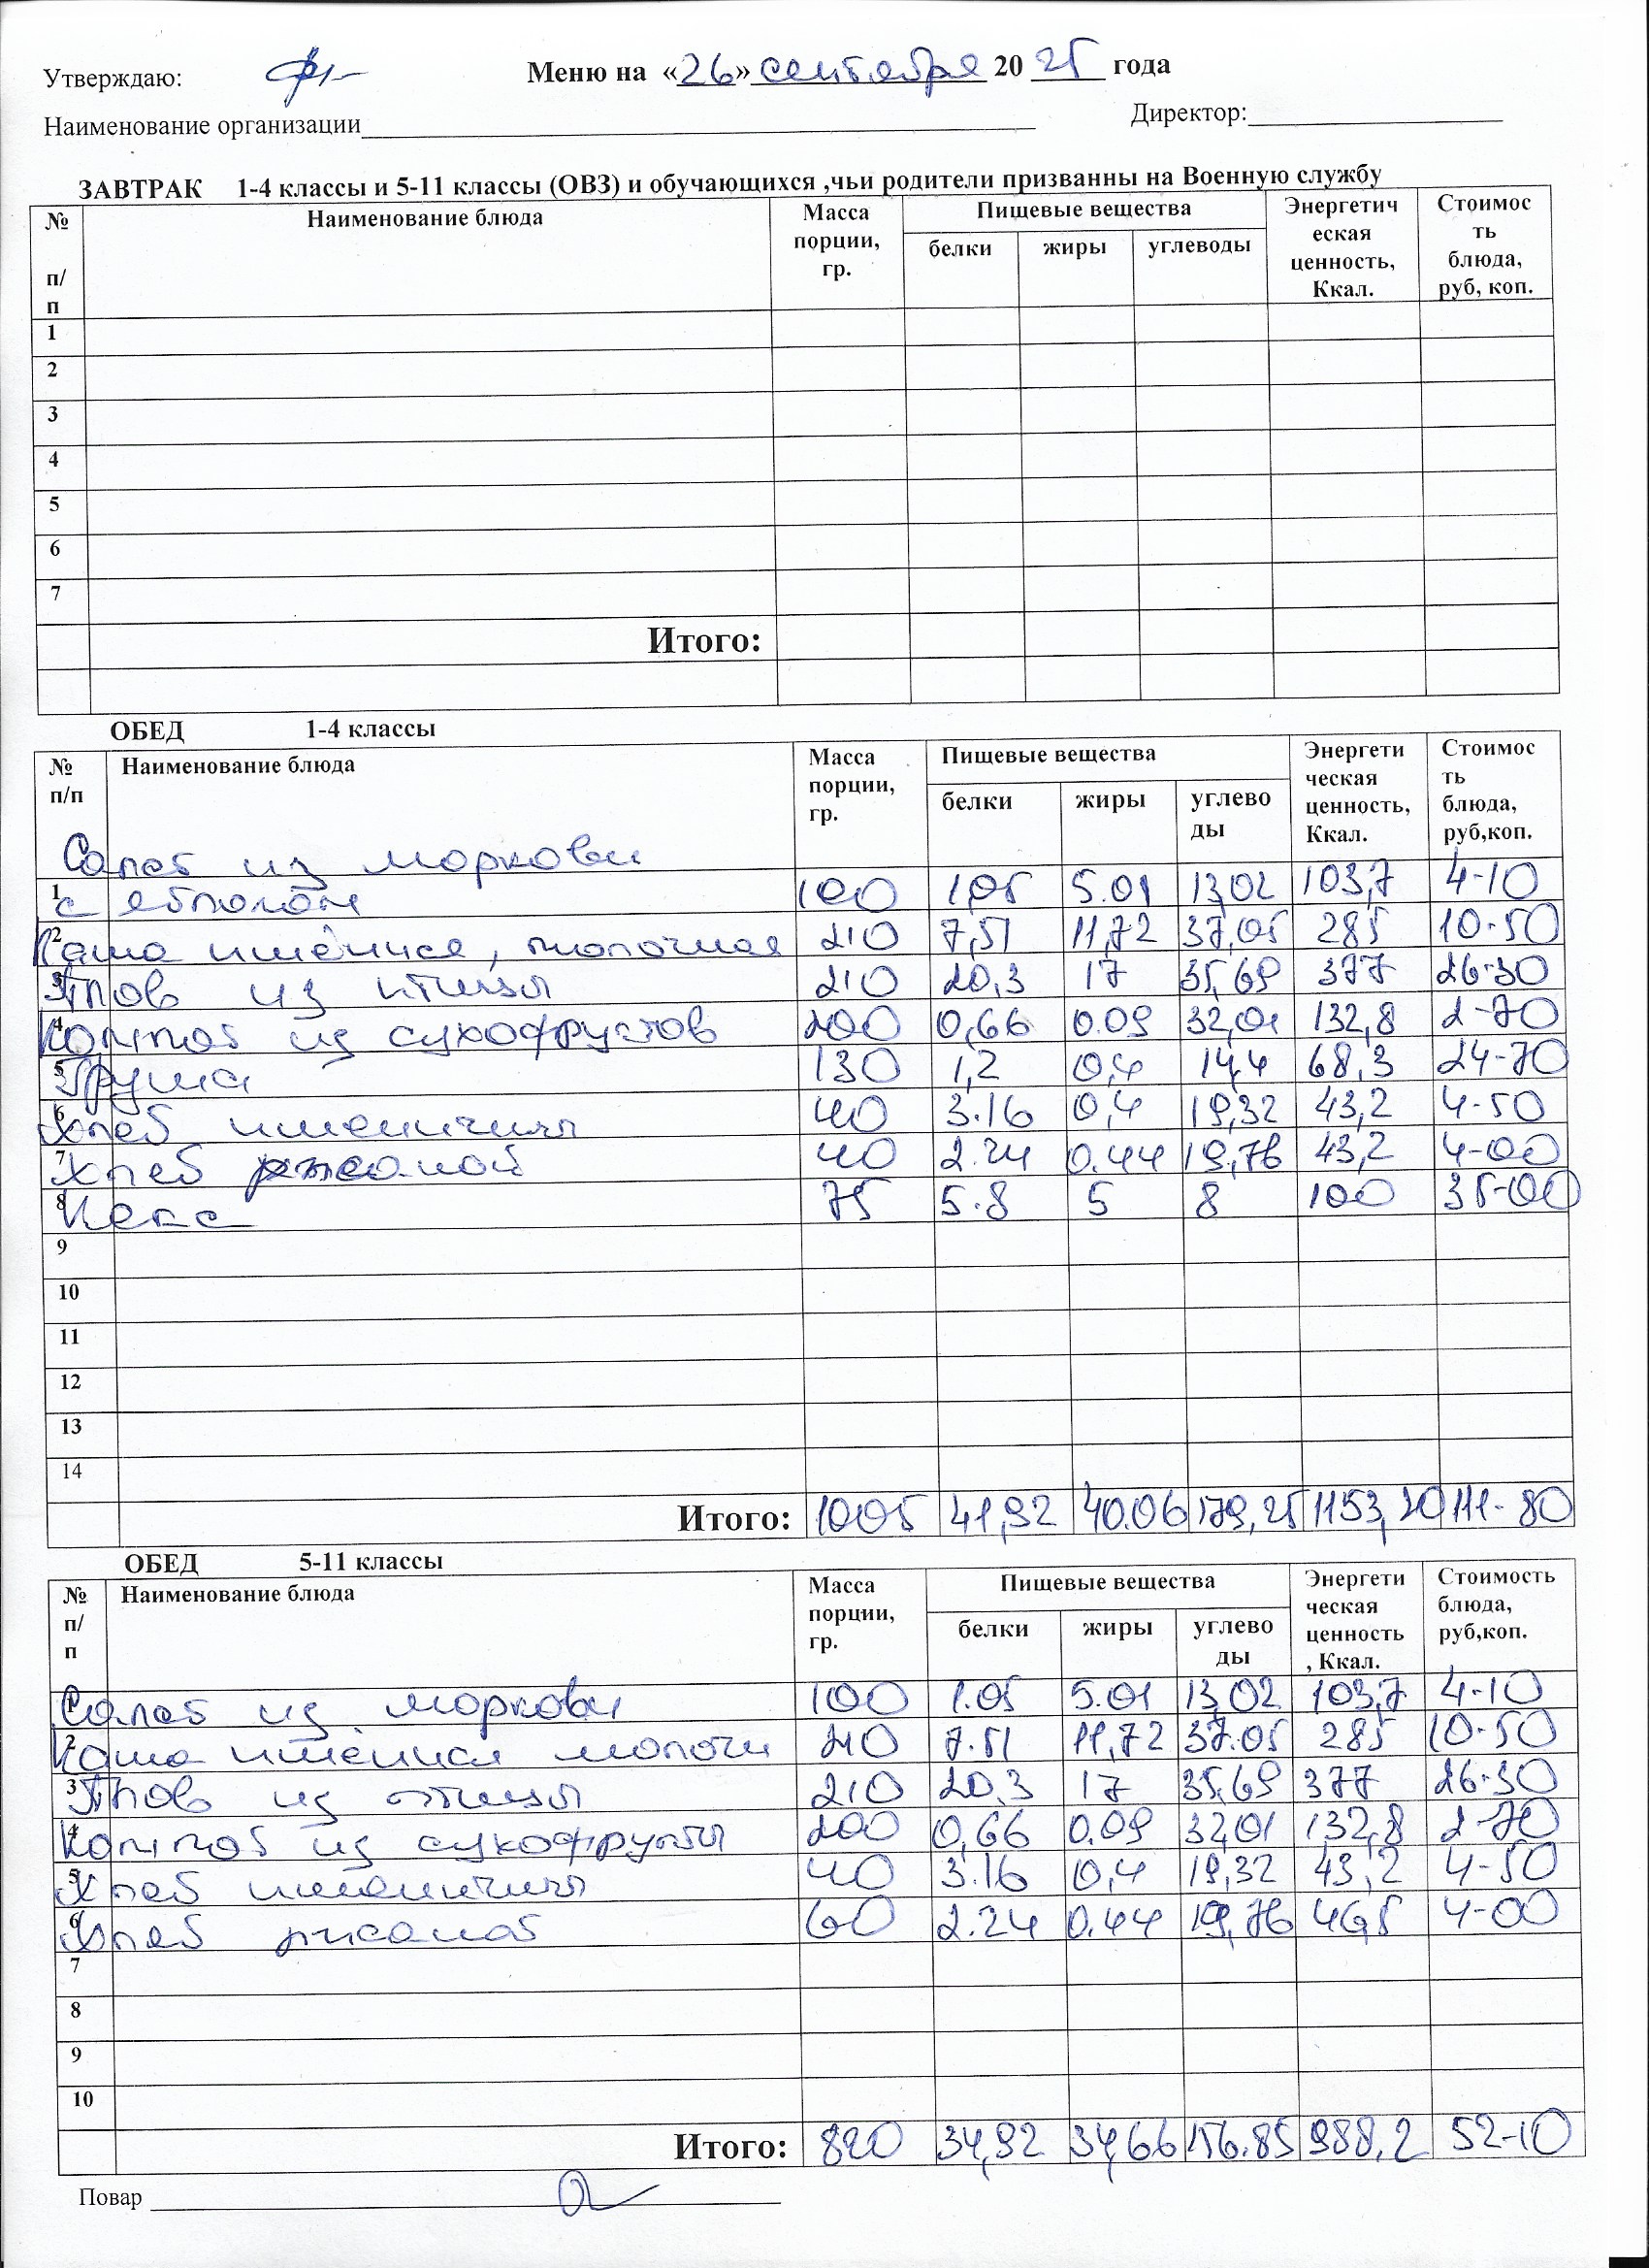 Утверждаю: Меню на «26» сентября 20 25 года
Наименование организации Директор:
ЗАВТРАК 1-4 классы и 5-11 классы (ОВЗ) и обучающихся ,чьи родители призванны на Военную службу
№ п/п Наименование блюда Масса порции, гр. Пищевые вещества Энергетическая ценность, Ккал. Стоимость блюда, руб, коп.
белки жиры углеводы
1
2
3
4
5
6
7
Итого:
ОБЕД 1-4 классы
№ п/п Наименование блюда Масса порции, гр. Пищевые вещества Энергетическая ценность, Ккал. Стоимость блюда, руб,коп.
белки жиры углеводы
Салат из моркови
1 с яблоком 100 1,05 5.01 13,02 103,7 4-10
2 Каша пшённая, молочная 210 7,51 11,72 37,05 285 10-50
3 Плов из птицы 210 20,3 17 35,69 377 26-30
4 Компот из сухофруктов 200 0,66 0.09 32,01 132,8 2-70
5 Груша 130 1,2 0,4 14,4 68,3 24-70
6 Хлеб пшеничны 40 3.16 0,4 19,32 43,2 4-50
7 Хлеб ржаной 40 2.24 0.44 19,76 43,2 4-00
8 Кекс 75 5.8 5 8 100 35-00
9
10
11
12
13
14
Итого: 1005 41,92 40.06 179,25 1153,20 111-80
ОБЕД 5-11 классы
№ п/п Наименование блюда Масса порции, гр. Пищевые вещества Энергетическая ценность, Ккал. Стоимость блюда, руб,коп.
белки жиры углеводы
1 Салат из моркови 100 1.05 5.01 13,02 103,7 4-10
2 Каша пшённая молочн 210 7.51 11,72 37.05 285 10-50
3 Плов из птицы 210 20,3 17 35,69 377 26-30
4 Компот из сухофрукты 200 0,66 0.09 32,01 132,8 2-70
5 Хлеб пшеничны 40 3.16 0,4 19,32 43,2 4-50
6 Хлеб ржаной 60 2.24 0.44 19,76 46,5 4-00
7
8
9
10
Итого: 820 34,92 34,66 156.85 988,2 52-10
Повар